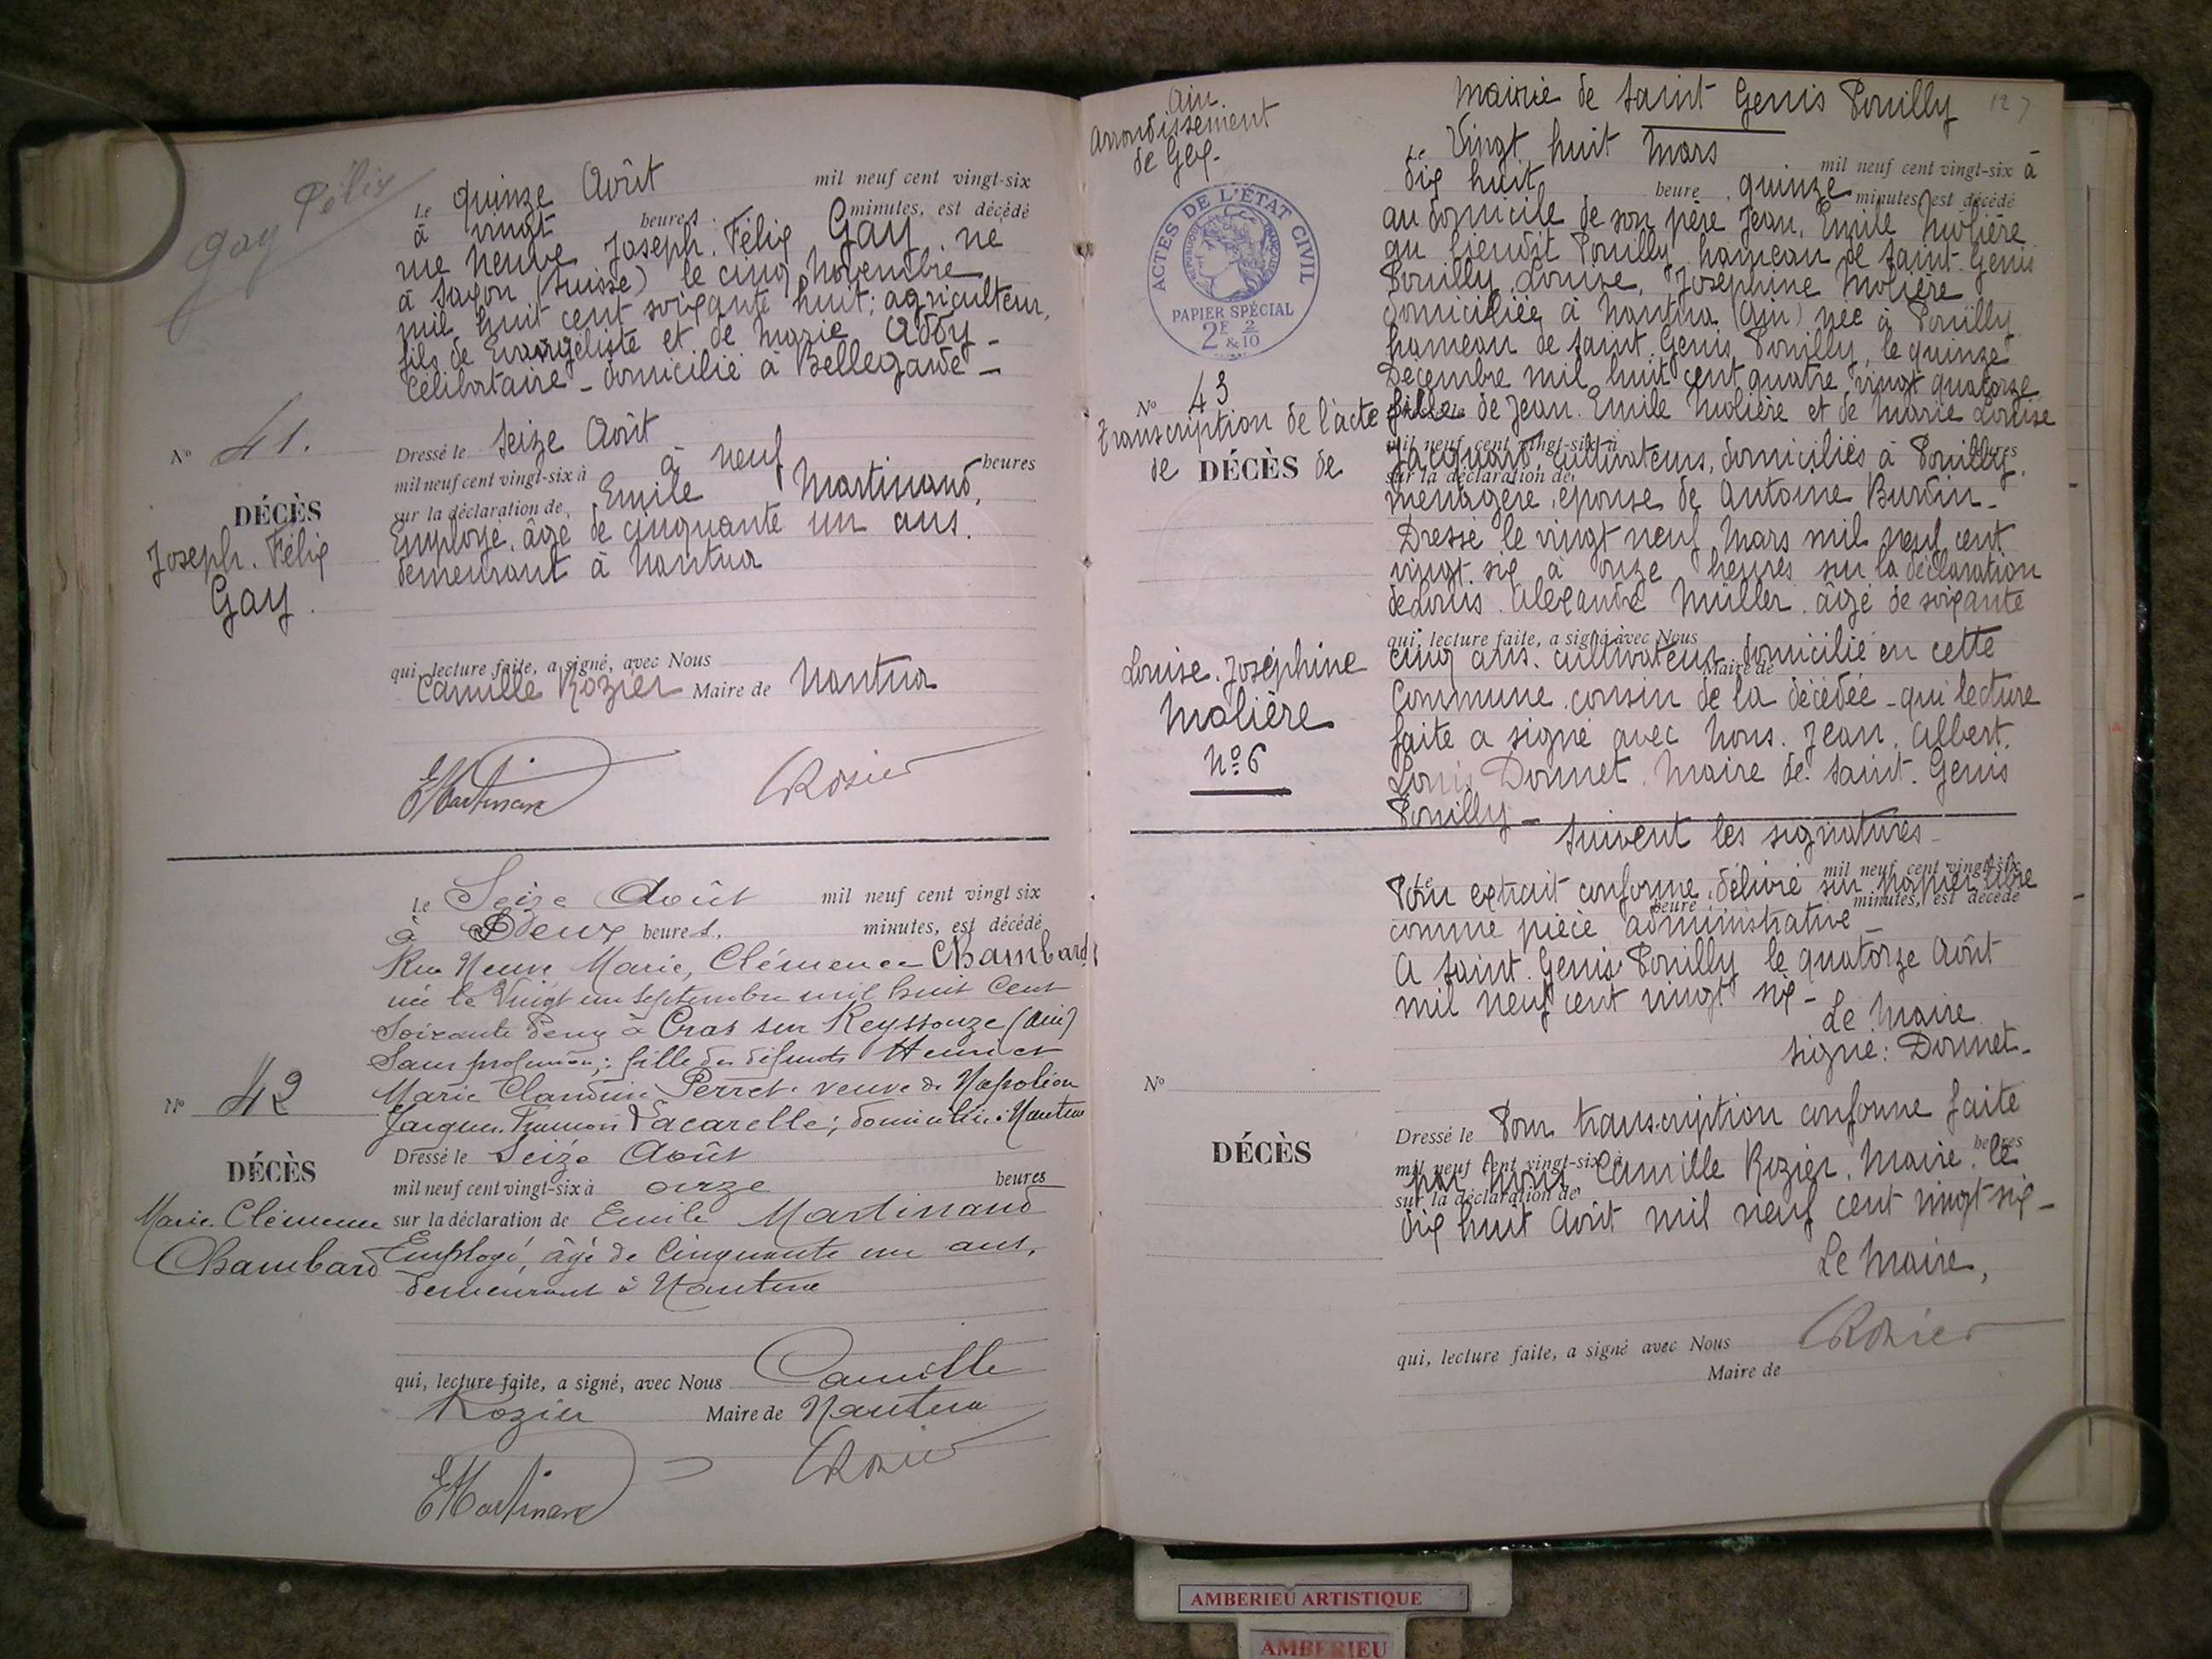 Gay Félix
Le quinze Août mil neuf cent vingt-six
à vingt heures minutes, est décédé
rue Neuve Joseph. Félix Gay. né
à Saxon (Suisse) le cinq Novembre
mil huit cent soixante huit; agriculteur,
fils de Evangéliste et de Marie Addy -
Célibataire - domicilié à Bellegarde -
N° 41.
DÉCÈS
Joseph. Félix
Gay.
Dressé le Seize Août
mil neuf cent vingt-six à à neuf heures
sur la déclaration de Emile Martinand,
Employé, âgé de cinquante un ans.
demeurant à Nantua
qui, lecture faite, a signé, avec Nous
Camille Rozier Maire de Nantua
EMartinand CRozier
Le Seize Août mil neuf cent vingt six
à Deux heures, minutes, est décédé
Rue Neuve Marie, Clémence Chambard,
née le Vingt un Septembre mil huit Cent
Soixante Deux à Cras sur Reyssouze (Ain)
Sans profession; fille des défunts Henri et
Marie Claudine Perret. veuve de Napoléon
Jacques Lacarelle; domiciliée à Nantua
N° 42
DÉCÈS
Marie. Clémence
Chambard
Dressé le Seize Août
mil neuf cent vingt-six à onze heures
sur la déclaration de Emile Martinand
Employé, âgé de Cinquante un ans,
demeurant à Nantua
qui, lecture faite, a signé, avec Nous Camille
Rozier Maire de Nantua
EMartinand CRozier
Ain.
Arrondissement
de Gex.
ACTES DE L'ÉTAT CIVIL
RÉPUBLIQUE FRANÇAISE
PAPIER SPÉCIAL
2E & 2/10
N° 43
transcription de l'acte
de DÉCÈS de
Louise. Joséphine
Molière
N° 6
127
Mairie de Saint Genis Pouilly
Le Vingt huit Mars mil neuf cent vingt-six à
dix huit heure quinze minutes, est décédé
au domicile de son père Jean, Emile Molière
au lieudit Pouilly hameau de Saint. Genis
Pouilly, Louise, Joséphine Molière
domiciliée à Nantua (Ain) née à Pouilly
hameau de Saint. Genis Pouilly, le quinze
Décembre mil huit cent quatre vingt quatorze
fille de Jean. Emile Molière et de Marie Louise
mil neuf cent vingt-six à heures
Jacquard cultivateurs, domiciliés à Pouilly.
sur la déclaration de
ménagère, épouse de Antoine Burdin -
Dressé le vingt neuf Mars mil neuf cent
vingt. six à onze heures sur la déclaration
de Louis. Alexandre Muller. âgé de soixante
qui, lecture faite, a signé avec Nous
cinq ans. cultivateur domicilié en cette
Maire de
Commune. cousin de la décédée - qui lecture
faite a signé avec Nous. Jean. Albert.
Louis Donnet. Maire de Saint. Genis
Pouilly -
Suivent les signatures -
Le mil neuf cent vingt-six
Pour extrait conforme, délivré sur papier libre
heure minutes, est décédé
comme pièce administrative -
A Saint. Genis Pouilly le quatorze Août
mil neuf cent vingt six -
Le Maire
signé: Donnet -
N°
DÉCÈS
Dressé le Pour transcription conforme faite
mil neuf cent vingt-six à heures
par Nous Camille Rozier. Maire. le
sur la déclaration de
dix huit Août mil neuf cent vingt six -
Le Maire,
CRozier
qui, lecture faite, a signé avec Nous
Maire de
AMBERIEU ARTISTIQUE
AMBERIEU